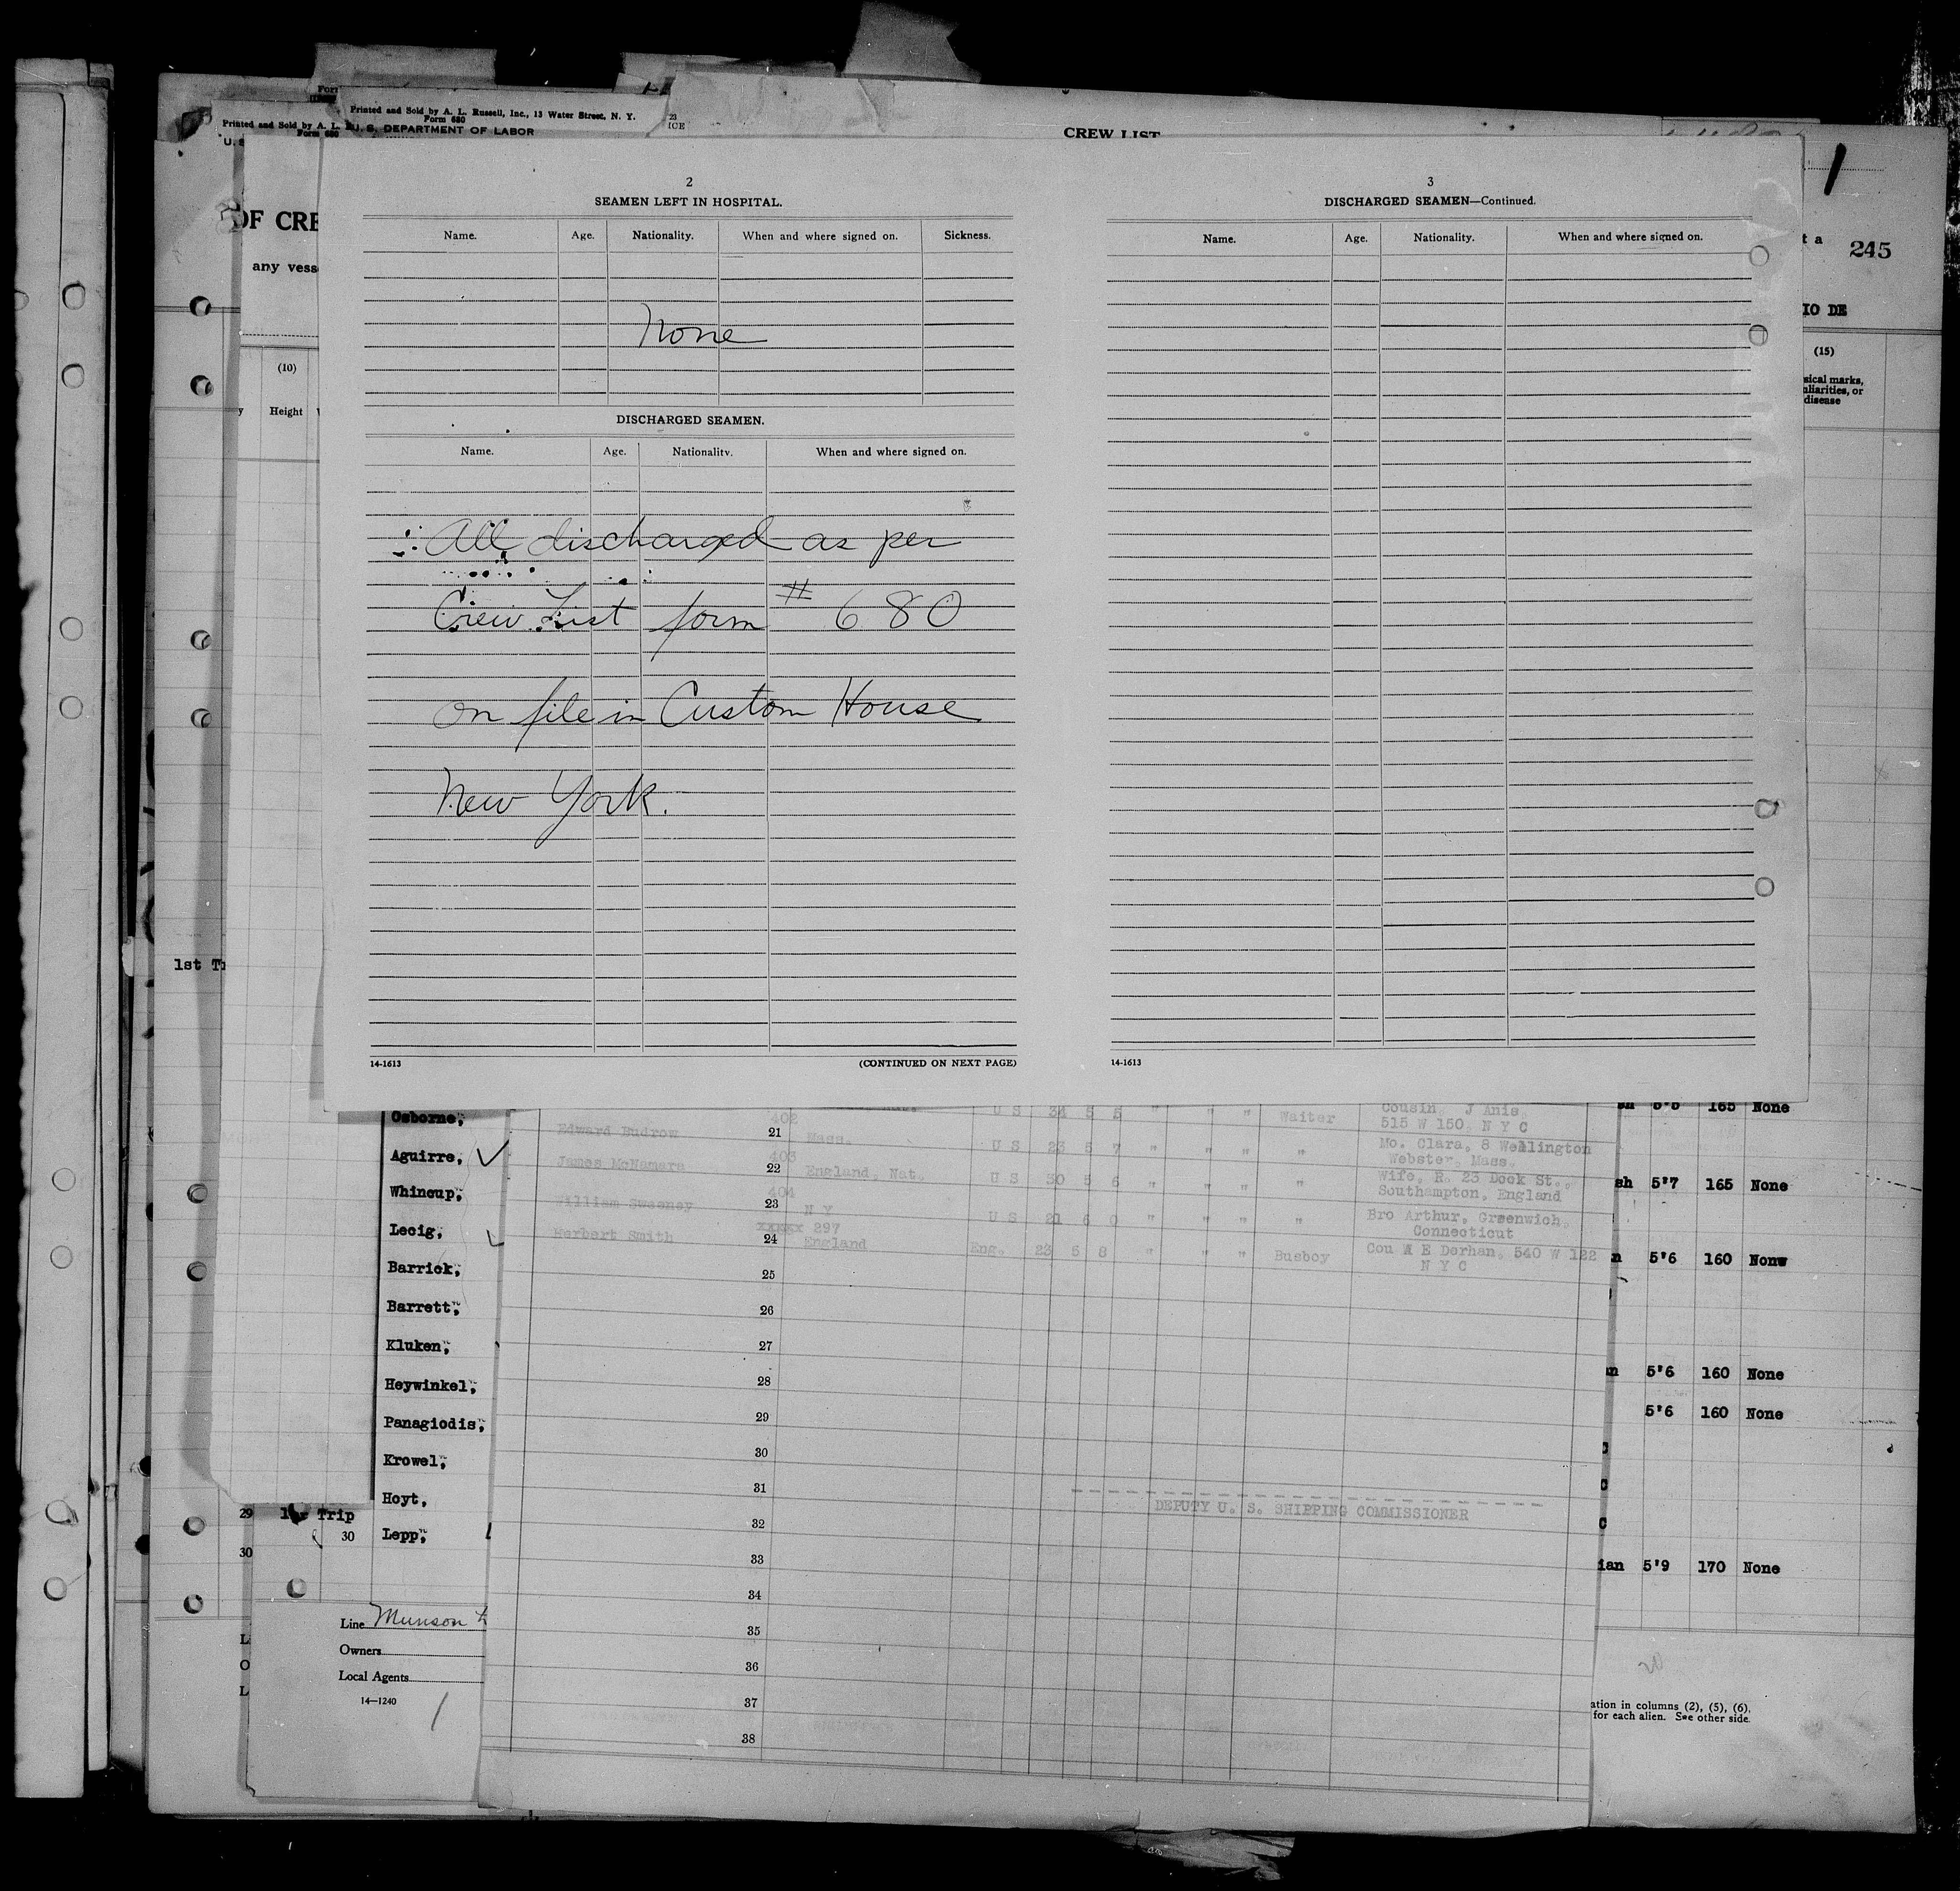 Printed and Sold by A. L. Russell, Inc., 13 Water Street, N. Y.
Form 680
23
ICE
Printed and Sold by A. L.
Form 680
U. S. DEPARTMENT OF LABOR
CREW LIST
OF CRE
any vess
(10)
Height
245
IO DE
(15)
sical marks,
uliarities, or
disease
2
SEAMEN LEFT IN HOSPITAL.
Name. Age. Nationality. When and where signed on. Sickness.
None
DISCHARGED SEAMEN.
Name. Age. Nationality. When and where signed on.
All discharged as per
Crew List form # 680
on file in Custom House
New York.
14-1613 (CONTINUED ON NEXT PAGE)
3
DISCHARGED SEAMEN—Continued.
Name. Age. Nationality. When and where signed on.
14-1613
1st Tr
Osborne,
Aguirre,
Whincup,
Lecig,
Barrick,
Barrett,
Kluken,
Heywinkel,
Panagiodis,
Krowel,
Hoyt,
Lepp,
29
Trip
30
30
402 U S 34 5 5 " " " Waiter Cousin, J Anis,
515 W 150, N Y C
Edward Budrow 21 Mass. U S 23 5 7 " " " " Mo. Clara, 8 Wellington
Webster, Mass.
403
James McNamara 22 England, Nat. U S 30 5 6 " " " Wife, R. 23 Dock St.,
Southampton, England
404
William Sweeney 23 N Y U S 21 6 0 " " " " Bro Arthur, Greenwich,
Connecticut
xxxxx 297
Herbert Smith 24 England Eng. 23 5 8 " " " Busboy Cou M E Dorhan, 540 W 122
N Y C
25
26
27
28
29
30
31
DEPUTY U. S. SHIPPING COMMISSIONER
32
33
34
35
36
37
38
sh 5'5 165 None
sh 5'7 165 None
n 5'6 160 Nonw
n 5'6 160 None
5'6 160 None
ian 5'9 170 None
Line Munson
Owners
Local Agents
14—1240
ation in columns (2), (5), (6).
for each alien. See other side.